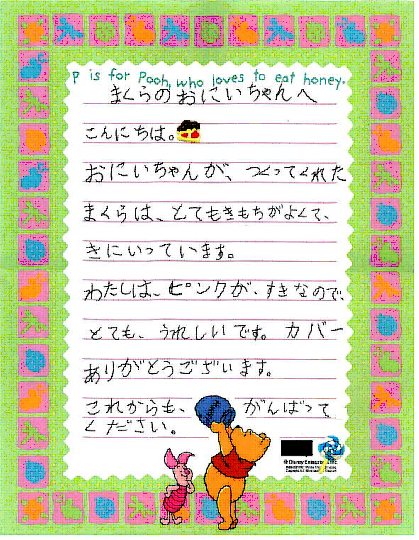 P is for Pooh, who loves to eat honey.
まくらのおにいちゃんへ
こんにちは。
おにいちゃんが、つくってくれた
まくらは、とてもきもちがよくて、
きにいっています。
わたしは、ピンクが、すきなので、
とても、うれしいです。カバー
ありがとうございます。
これからも、がんばって
ください。